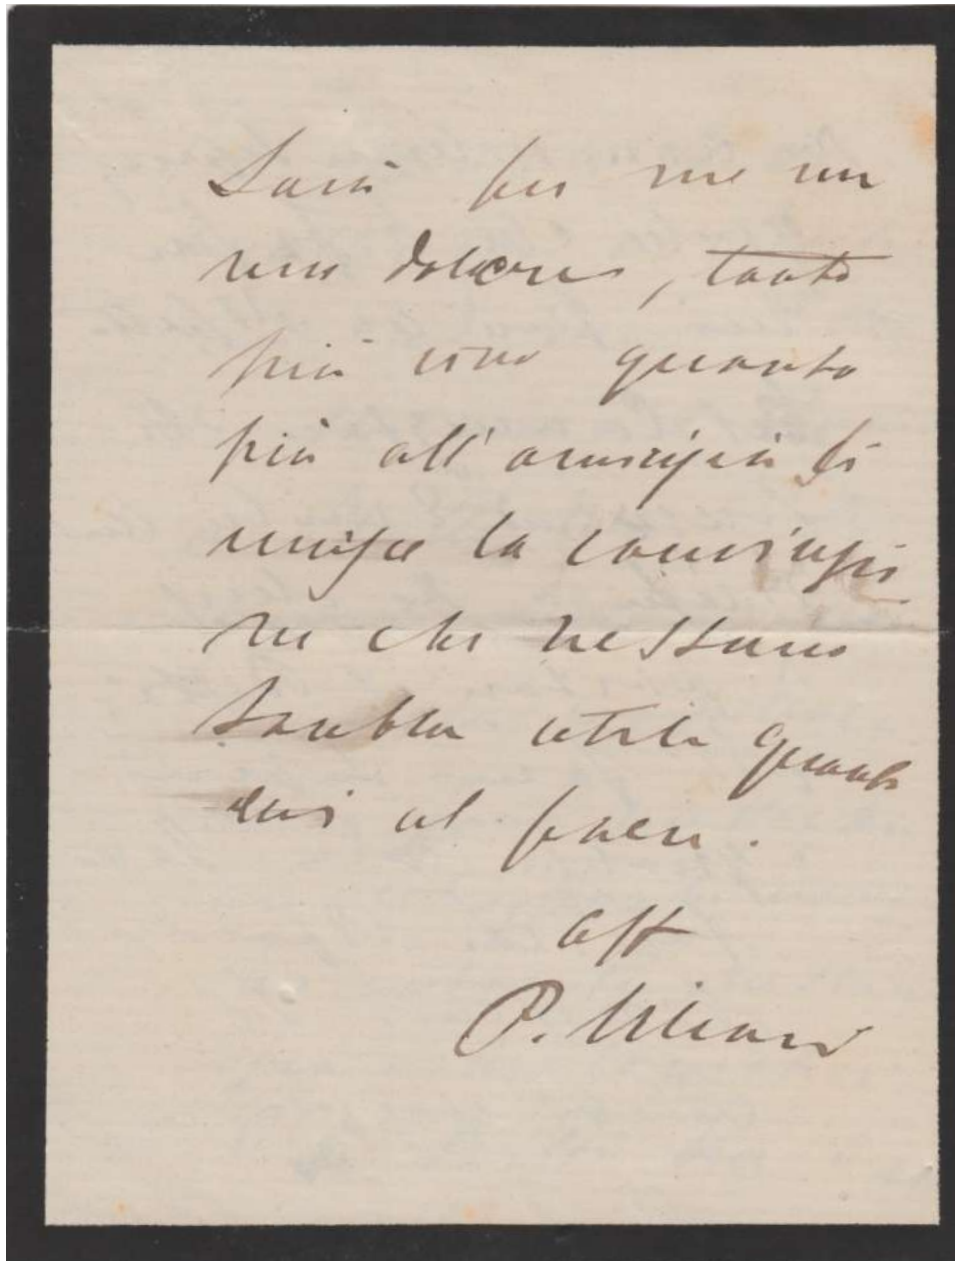 Sarà per me un
vero dolore, tanto
più vivo quanto
più all'amicizia si
unisce la convinzio
ne che nessuno
sarebbe utile quanto
Lei al paese.
aff
P. Villari